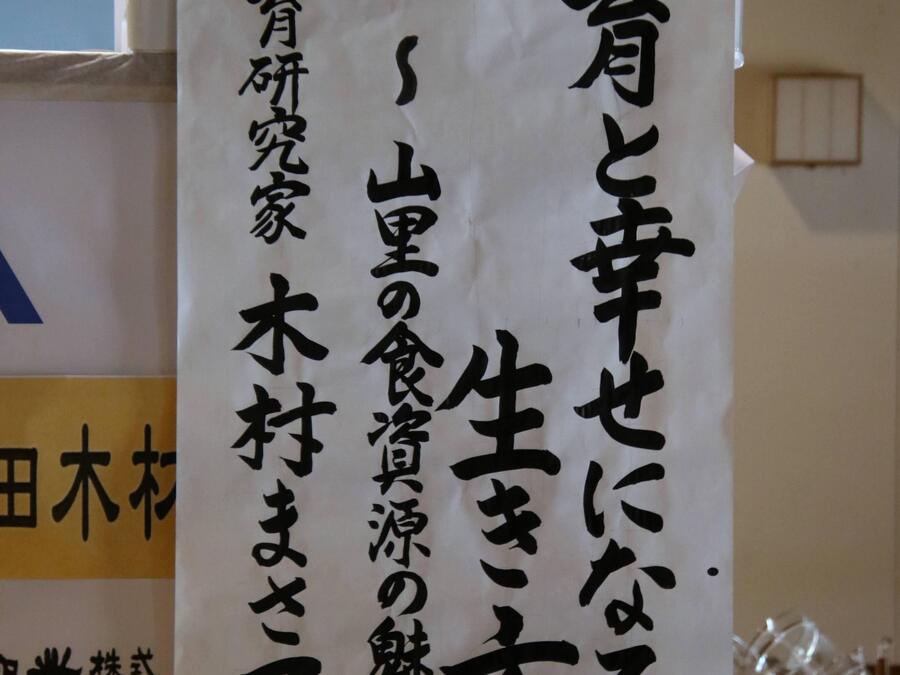 育と幸せになる
生き方
〜山里の食資源の魅
育研究家 木村まさ子
田木材
株式